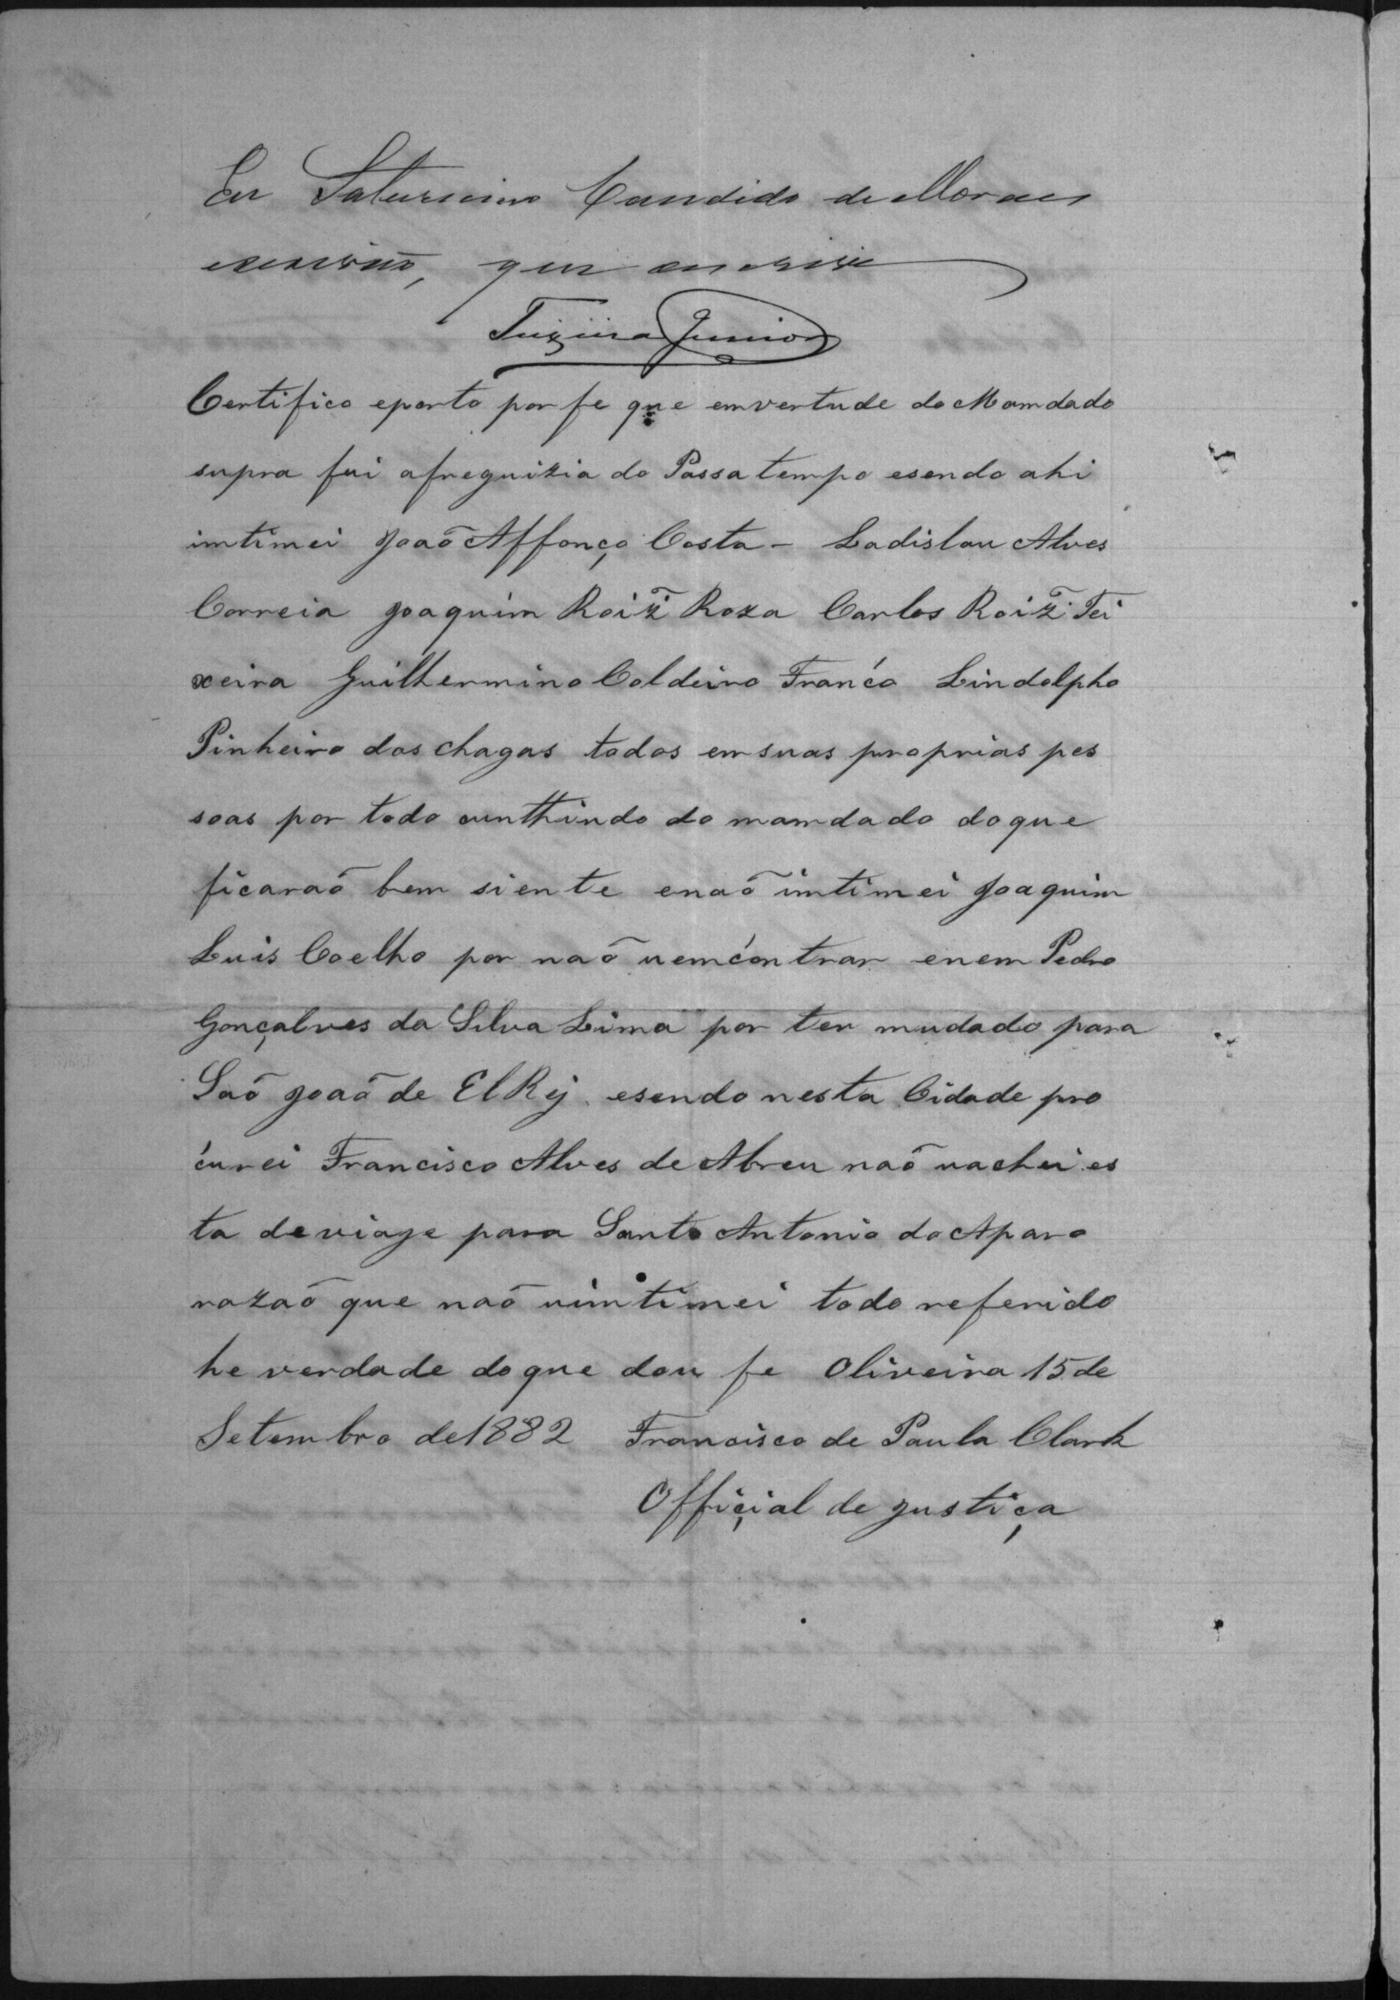 Eu Saturnino Candido de Moraes
escrivão, que escrivi
Teixeira Junior
Certifico eporto por fe que emvertude do Mamdado
supra fui afreguizia do Passa tempo esendo ahi
imtimei João Affonço Costa - Ladislau Alves
Correia Joaquim Roiz̃ Roza Carlos Roiz̃ Tei
xeira Guilhermino Coldeiro Franco Lindolpho
Pinheiro das chagas todos em suas proprias pes
soas por todo do mamdado do que
ficaraõ bem siente enaõ imtimei Joaquim
Luis Coelho por naõ uemcontrar enem Pedro
Gonçalves da Silva Lima por ter mudado para
Saõ Joaõ de El Rej esendo nesta Cidade pro
curei Francisco Alves de Abreu naõ uachei es
ta de viaje para Santo Antonio do Aparo
razaõ que naõ uimtimei todo referido
he verdade do que dou fe Oliveira 15 de
Setembro de 1882 Francisco de Paula Clark
Offiçial de justiça